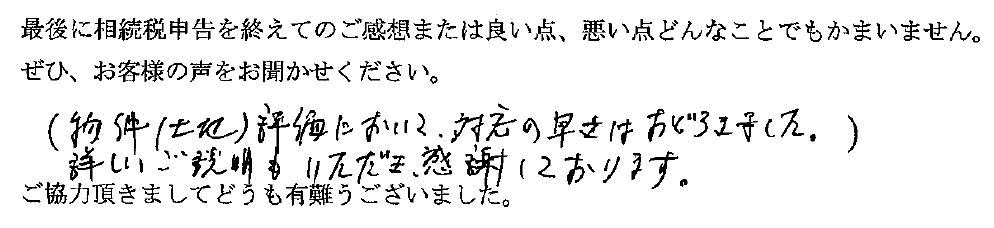 最後に相続税申告を終えてのご感想または良い点、悪い点どんなことでもかまいません。
ぜひ、お客様の声をお聞かせください。
(物件(土地)評価において、対応の早さはおどろきました。)
詳しいご説明もいただき、感謝しております。
ご協力頂きましてどうも有難うございました。